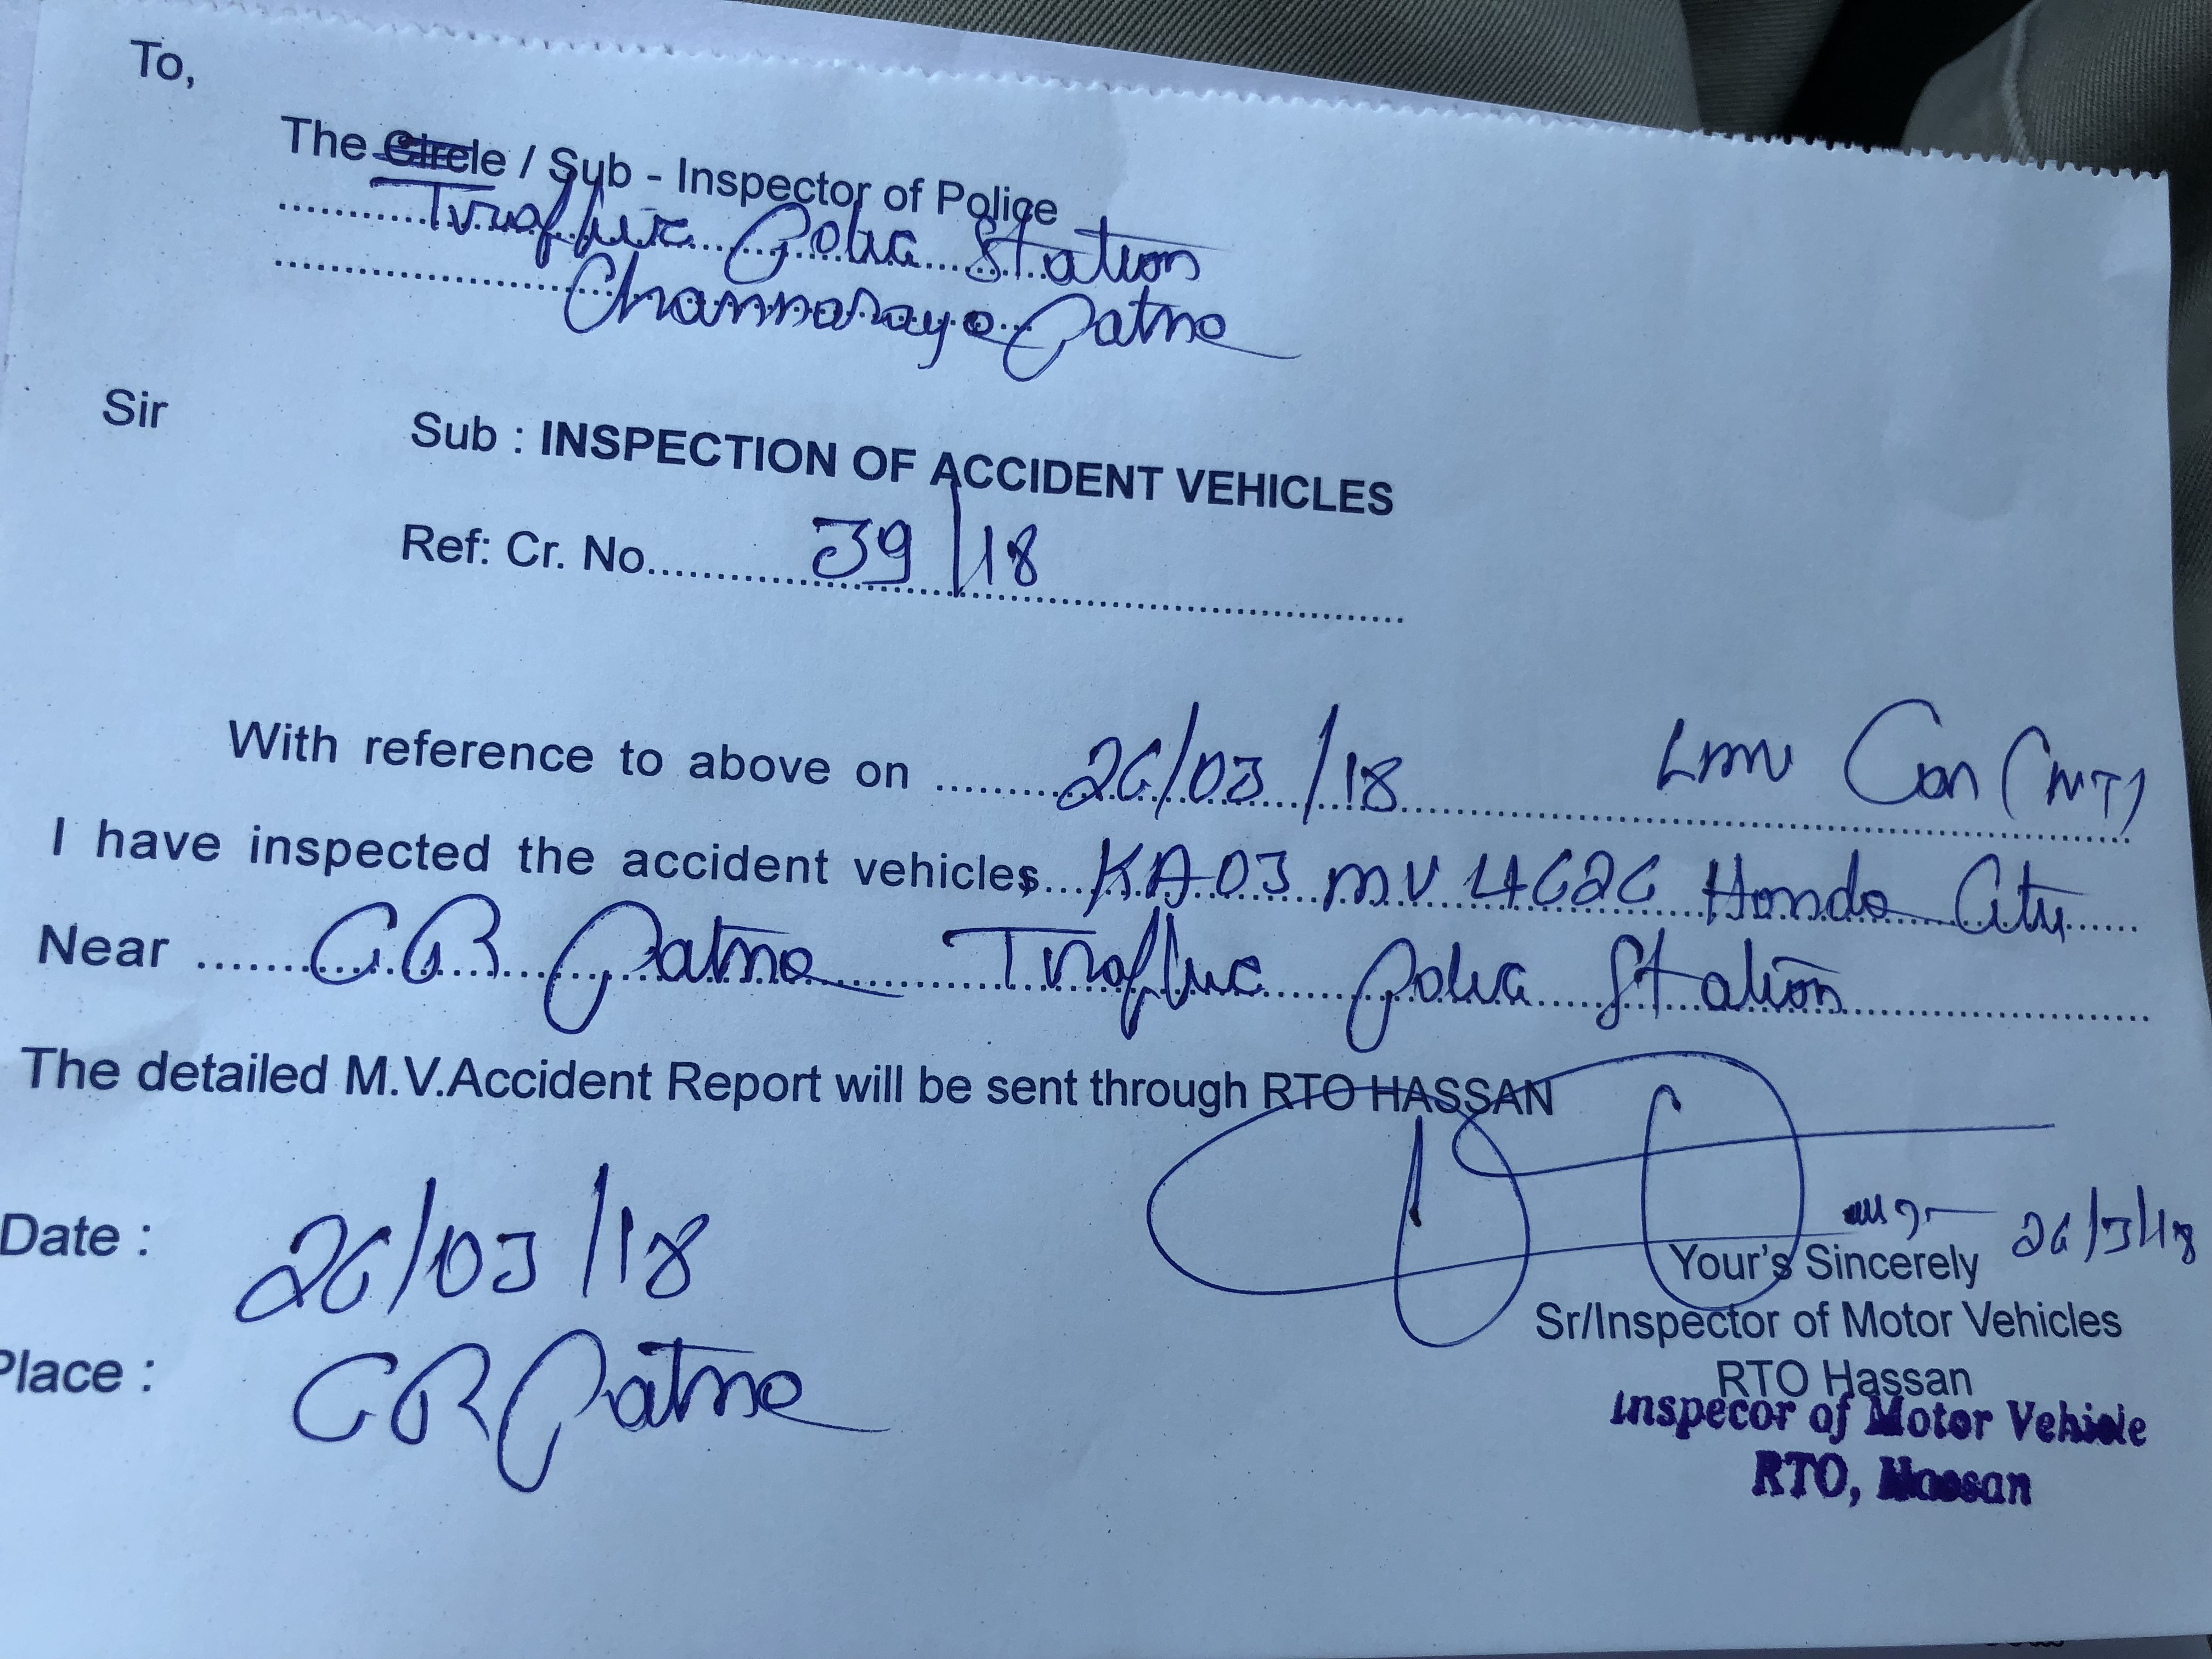 To,
The Circle / Sub - Inspector of Police
Traffic Police Station
Channaraya Patna
Sir
Sub : INSPECTION OF ACCIDENT VEHICLES
Ref: Cr. No. 39/18
With reference to above on 26/03/18 LMV Car (NT)
I have inspected the accident vehicles KA03 MV 4626 Honda City
Near CR Patna Traffic Police Station
The detailed M.V.Accident Report will be sent through RTO HASSAN
Date : 26/03/18
26/3/18
Your's Sincerely
Sr/Inspector of Motor Vehicles
Place : CR Patna
RTO Hassan
Inspecor of Motor Vehicle
RTO, Hassan